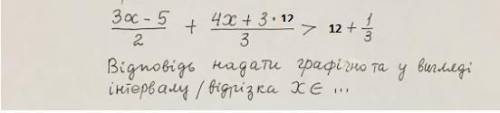 (3x - 5)/2 + (4x + 3 · 12)/3 > 12 + 1/3
Відповідь надати графічно та у вигляді
інтервалу / відрізка x ∈ ...